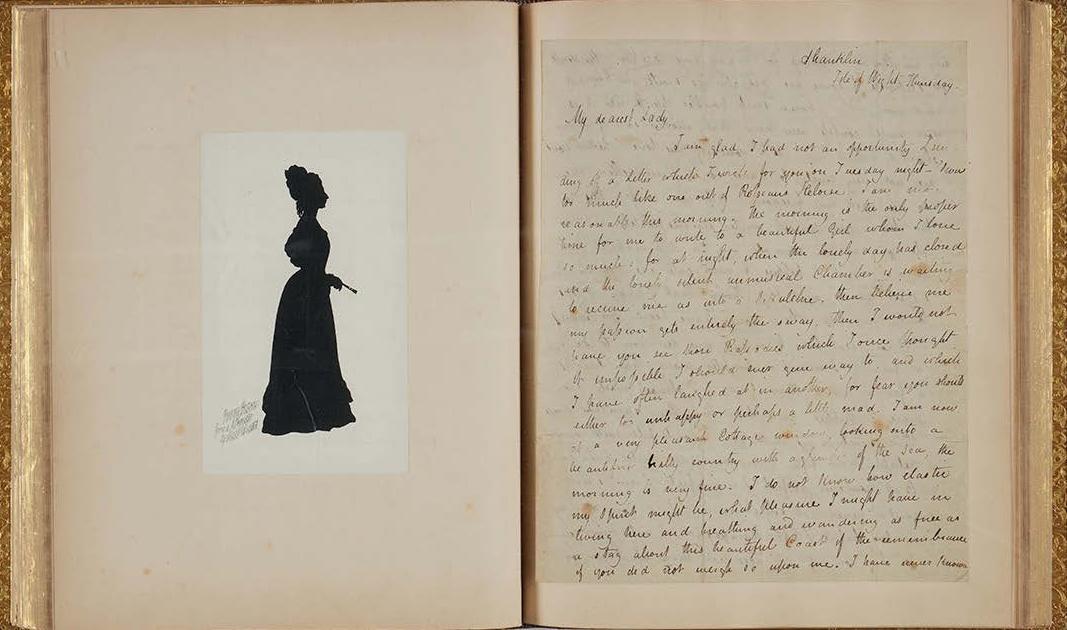 Shanklin
Isle of Wight Thursday
My dearest Lady
I am glad I had not an opportunity
of a Letter which I wrote for you on Tuesday night — 'twas
too much like one out of Heloise. I am
reasonable this morning. The morning is the only proper
time for me to write to a beautiful Girl whom I love
so much: for at night, when the lonely day has closed
and the lonely silent unmusical Chamber is waiting
to receive me as into a Sepulchre, then believe me
my passion gets entirely the sway, then I would not
have you see those Rapsodies which I once thought
it impossible I should ever give way to and which
I have often laughed at in another, for fear you should
either too unhappy or perhaps a little mad. I am now
at a very pleasant Cottage window, looking onto a
beautiful hilly country with a glimpse of the sea, the
morning is very fine. I do not know how elastic
my spirit might be, what pleasure I might have in
living here and breathing and wandering as free as
a stag about this beautiful Coast if the remembrance
of you did not weigh so upon me. I have never known